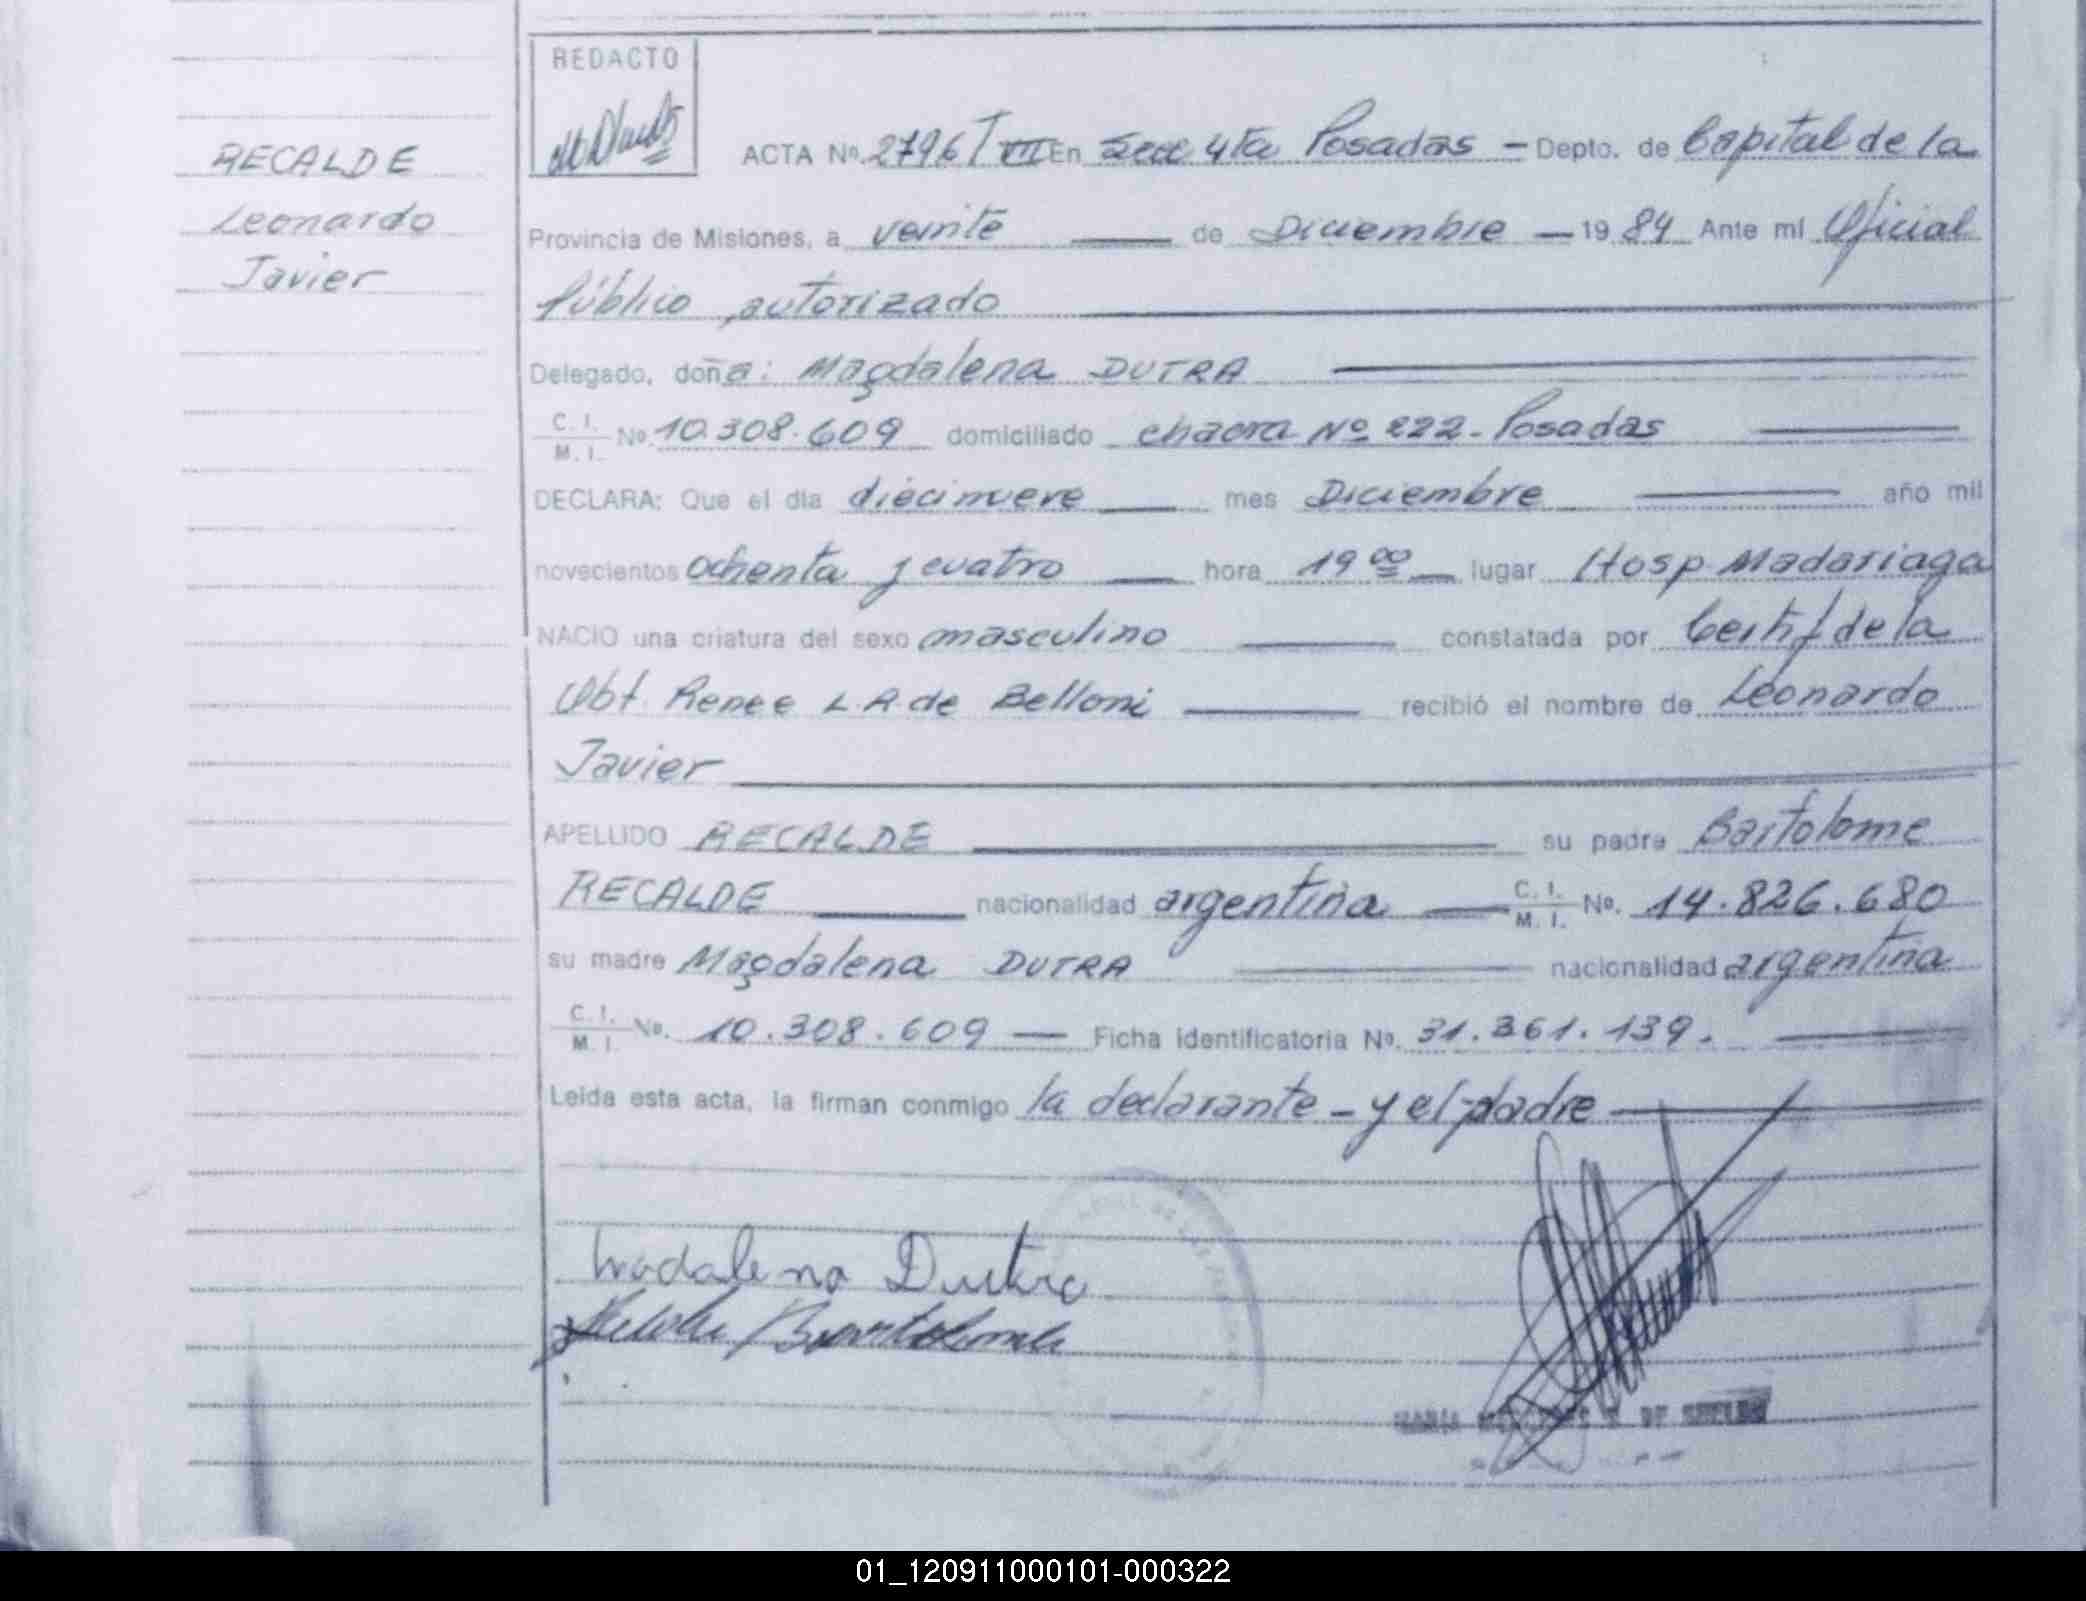 REDACTO
RECALDE
Leonardo
Javier
ACTA Nº. 2796 T VII En Secc 4ta Posadas - Depto. de Capital de la
Provincia de Misiones, a veinte de Diciembre 19 84 Ante mí Oficial
Público autorizado
Delegado, doña: Magdalena DUTRA
C. I. / M. I. Nº. 10.308.609 domiciliado chacra Nº 222 - Posadas
DECLARA: Que el día diecinueve mes Diciembre año mil
novecientos ochenta y cuatro hora 19 00 lugar Hosp Madariaga
NACIO una criatura del sexo masculino constatada por Certif de la
Obt. Renee L.R. de Belloni recibió el nombre de Leonardo
Javier
APELLIDO RECALDE su padre Bartolome
RECALDE nacionalidad argentina C. I. / M. I. Nº. 14.826.680
su madre Magdalena DUTRA nacionalidad argentina
C. I. / M. I. Nº. 10.308.609 — Ficha identificatoria Nº. 31.361.139.
Leída esta acta, la firman conmigo la declarante - y el padre
Madalena Dutra
Bartolome
01_120911000101-000322